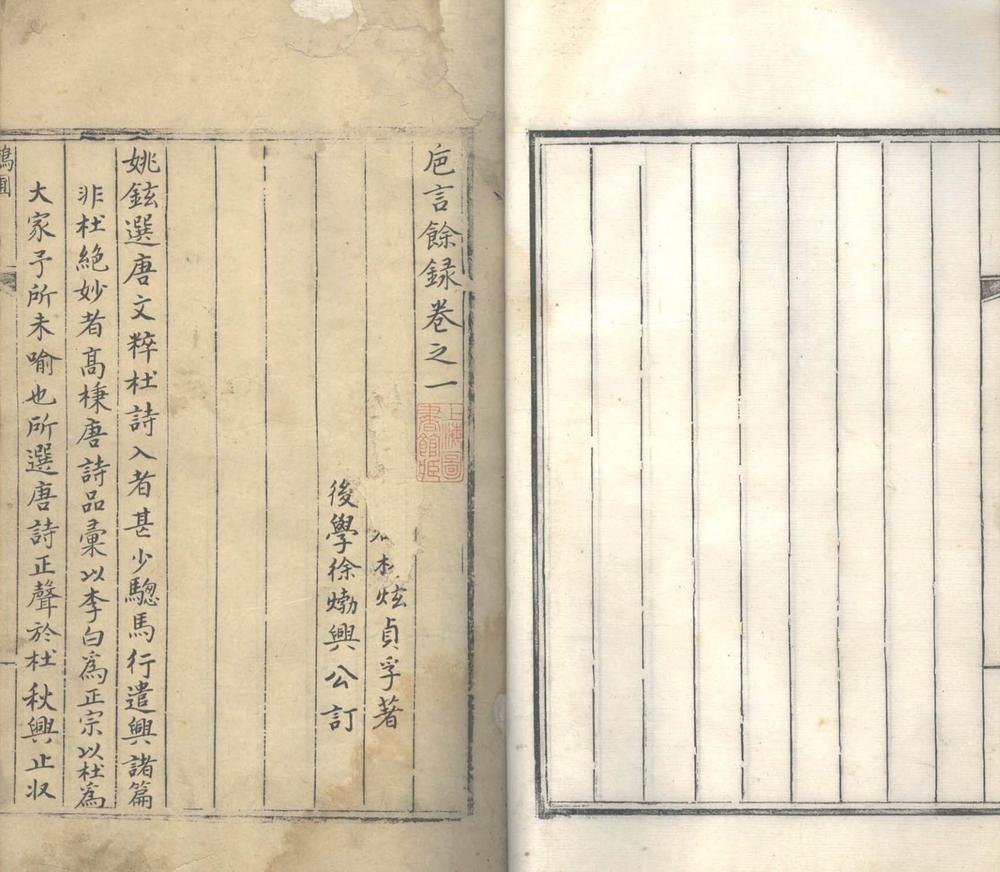 卮言餘録卷之一
上海圖書館藏
林炫貞孚著
後學徐𤊹興公訂
姚鉉選唐文粹杜詩入者甚少驄馬行遣興諸篇
非杜絶妙者高棅唐詩品彙以李白爲正宗以杜爲
大家予所未喻也所選唐詩正聲於杜秋興止収